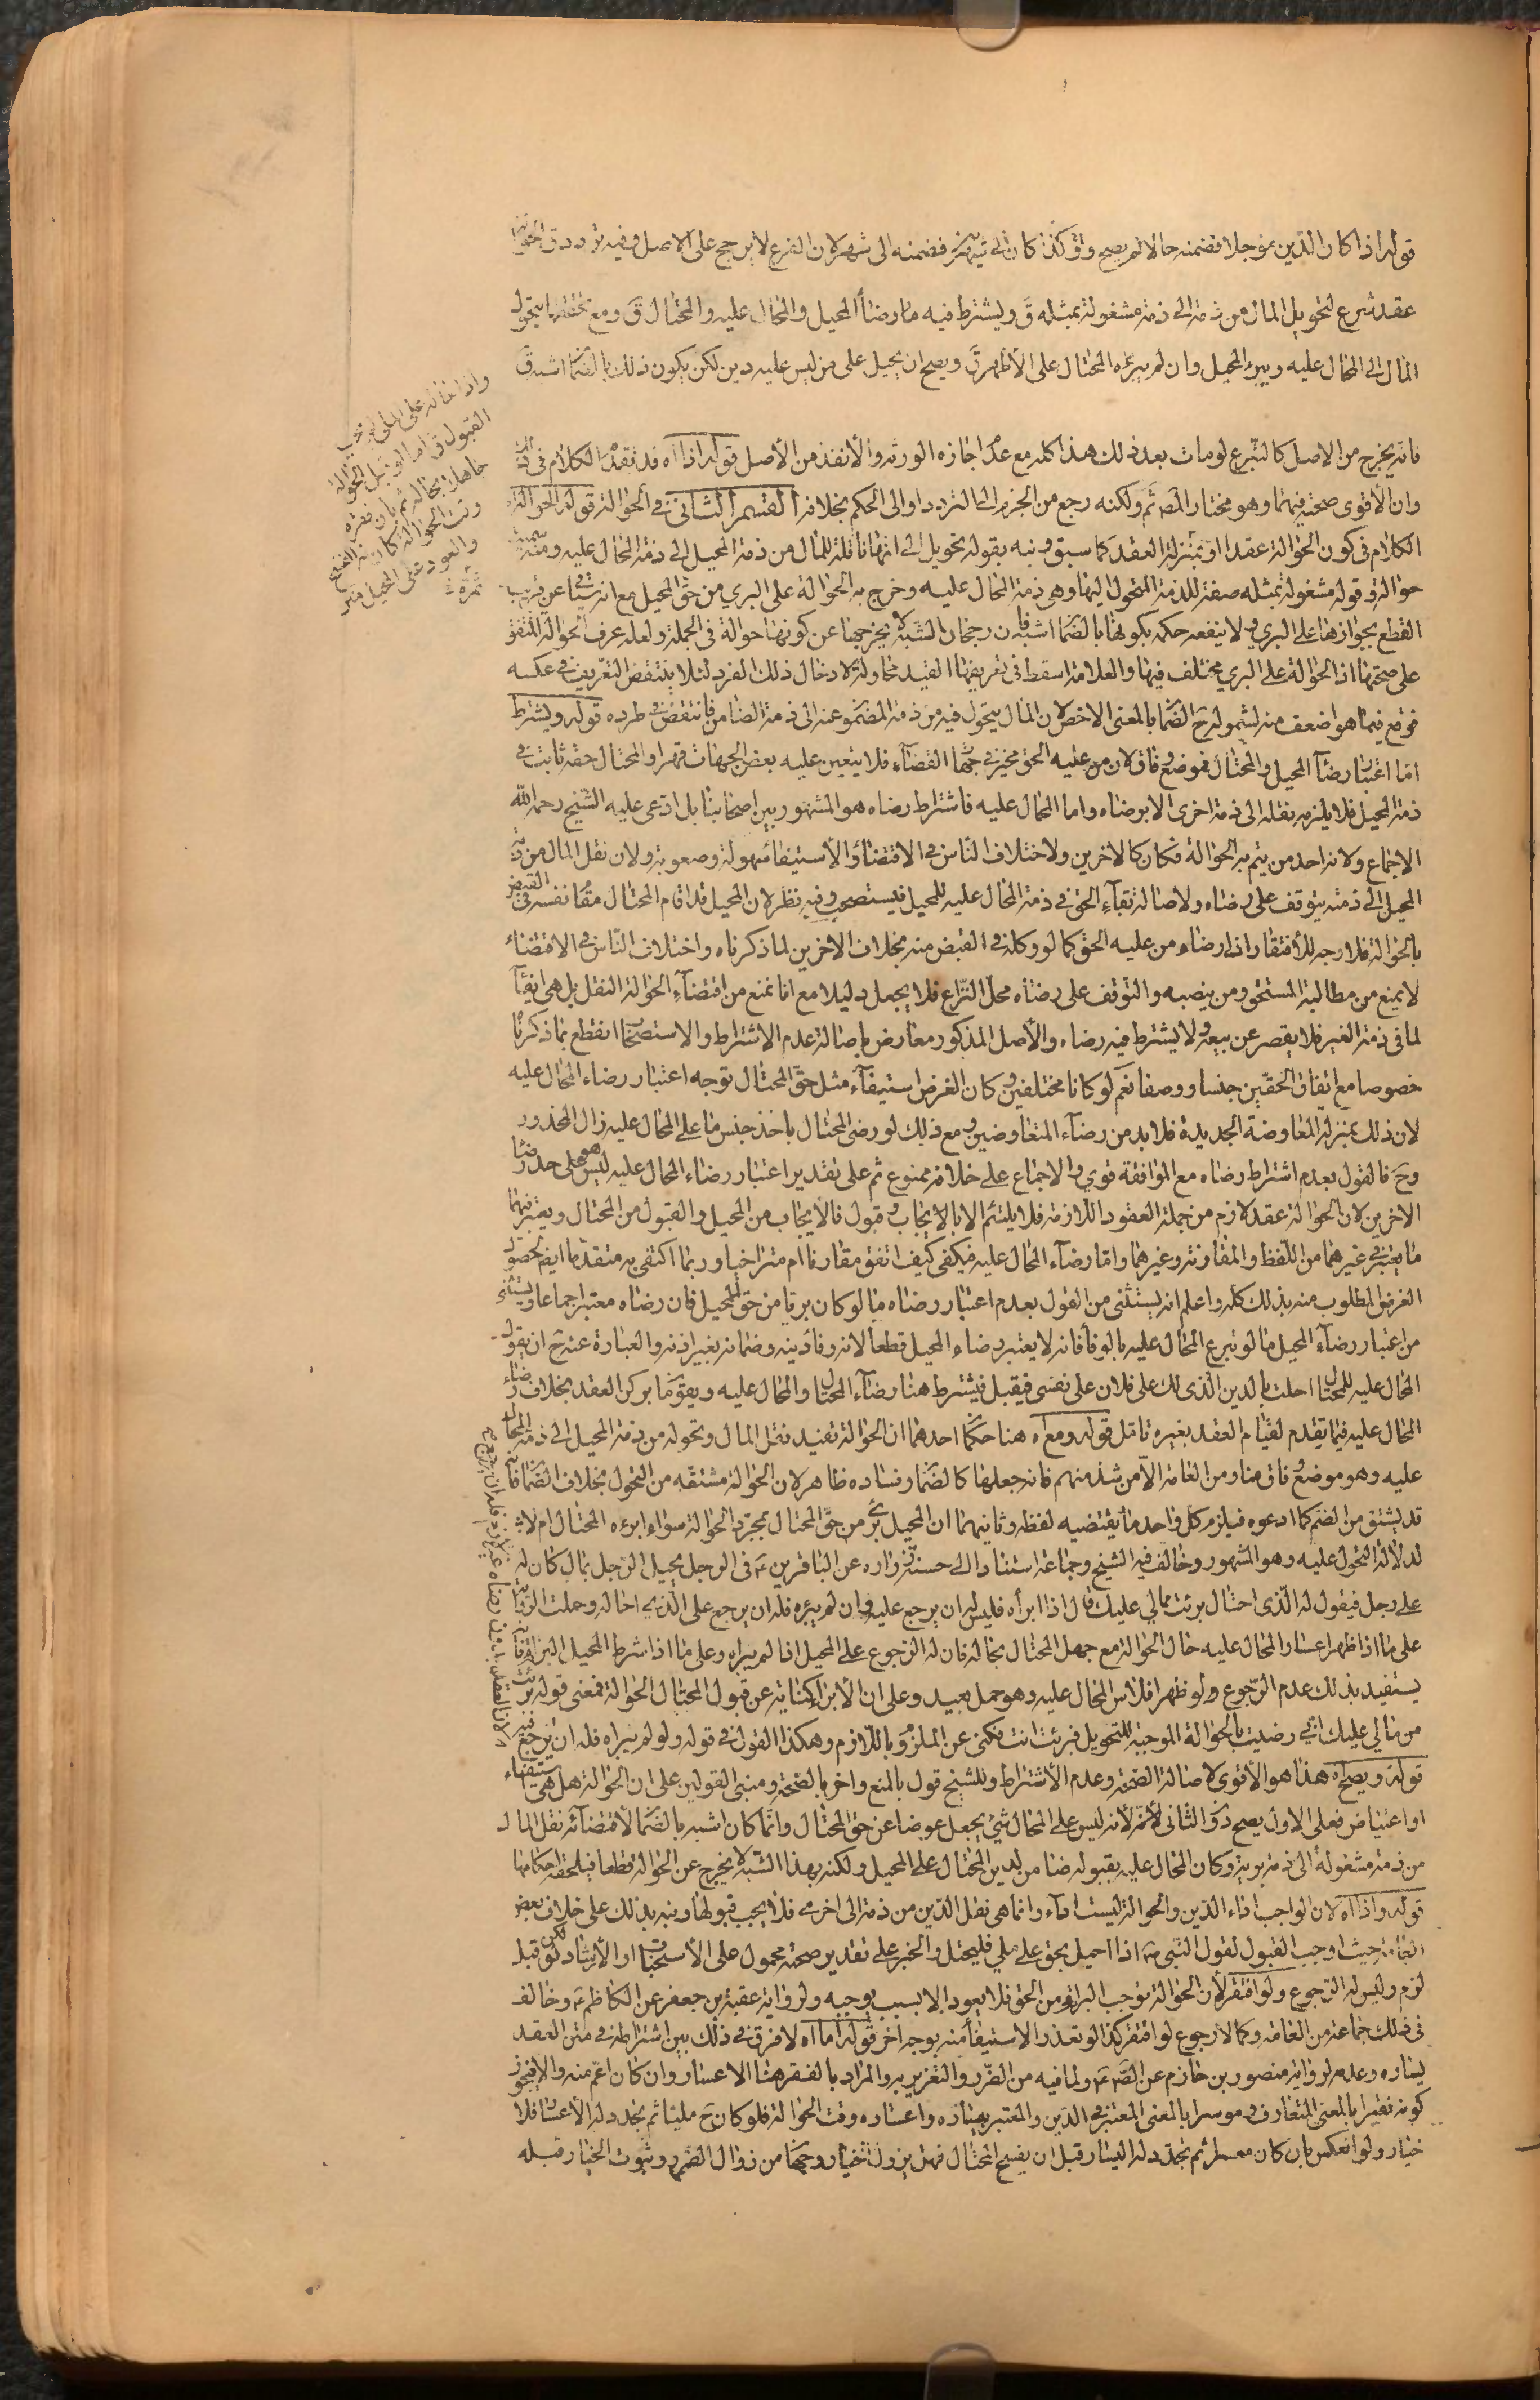 قوله اذا كان الدّين مؤجلا فضمنه حالا لم يصح وق وكذا كان الى شهرين فضمنه الى شهر لان الفرع لا يرجح على الاصل وفيه تردد ق الحوالة
عقد شرع لتحويل المال من ذمة الى ذمة مشغولة بمثله ق ويشترط فيه ما رضا المحيل والمحال عليه والمحتال ق ومع تحققها يتحول
المال الى المحال عليه ويبرء المحيل وان لم يبرءه المحتال على الأظهر ق ويصح ان يحيل على من ليس عليه دين لكن يكون ذلك بالضمان اشبه ق
واذا احاله على الملى لم يجب
القبول ق اما لو قبل الحوالة
جاهلا بحاله ثم بان فقره
وقت الحوالة كان له الفسخ
والعود على المحيل
فانه يخرج من الاصل كالتبرع لو مات بعد ذلك هذا كله مع عدم اجازه الورثه والا نفذ من الأصل قوله اذا اه قد تقدم الكلام فى
وان الأقوى صحته فيهما وهو مختار المص ثم ولكنه رجع من الجزم الى التردد او الى الحكم بخلافه القسم الثانى فى الحوالة قوله الحوالة اه
الكلام فى كون الحوالة عقدا او بمنزلة العقد كما سبق ونبه بقوله تحويل الى انها ناقلة للمال من ذمة المحيل الى ذمة المحال عليه ومنه سميت
حوالة وقوله مشغولة بمثله صفة للذمة المتحول اليها وهى ذمة المحال عليه وخرج به الحوالة على البري من حق المحيل مع انه سياتى عن قريب
القطع بجوازها على البري ولا ينفعه حكمه بكونها بالضمان اشبه فان رجحان الشبه لا يخرجها عن كونها حوالة فى الجملة ولعله عرف الحوالة المتفق
على صحتها اذ الحوالة على البري مختلف فيها والعلامة اسقط فى تعريفها القيد محاولة لادخال ذلك الفرد لئلا ينتقض التعريف فى عكسه
فوقع فيما هو اضعف منه لشموله ح الضمان بالمعنى الاخص لان المال يتحول فيه من ذمة المضمون عنه الى ذمة الضامن فانتقض فى طرده قوله ويشترط
اما اعتبار رضا المحيل والمحتال فموضع وفاق لان من عليه الحق مخير فى جهات القضاء فلا يتعين عليه بعض الجهات قهرا والمحتال حقه ثابت فى
ذمة المحيل فلا يلزمه نقله الى ذمة اخرى الا برضاه واما المحال عليه فاشتراط رضاه هو المشهور بين اصحابنا بل ادعى عليه الشيخ رحمه الله
الاجماع ولانه احد من يتم به الحوالة فكان كالاخرين ولاختلاف الناس فى الاقتضاء والاستيفاء سهولة وصعوبة ولان نقل المال من ذمة
المحيل الى ذمته يتوقف على رضاه ولاصالة بقاء الحق فى ذمة المحال عليه للمحيل فيستصحب وفيه نظر لان المحيل قد اقام المحتال مقام نفسه فى القبض
بالحوالة فلا وجه للافتقار اذا رضاء من عليه الحق كما لو وكله فى القبض منه بخلاف الاخرين لما ذكرناه واختلاف الناس فى الاقتضاء
لا يمنع من مطالبة المستحق ومن ينصبه والتوقف على رضاه محل النزاع فلا يجعل دليلا مع انا نمنع من اقتضاء الحوالة النقل بل هى ايفاء
لما فى ذمة الغير فلا يقصر عن بيعه ولا يشترط فيه رضاه والأصل المذكور معارض باصالة عدم الاشتراط والاستصحاب انقطع بما ذكرنا
خصوصا مع اتفاق الحقين جنسا ووصفا نعم لو كانا مختلفين وكان الغرض استيفاء مثل حق المحتال توجه اعتبار رضاء المحال عليه
لان ذلك بمنزلة المعاوضة الجديدة فلا بد من رضاء المتعاوضين ومع ذلك لو رضى المحتال باخذ جنس ما على المحال عليه زال المحذور
وح فالقول بعدم اشتراط رضاه مع الموافقة قوي والاجماع على خلافه ممنوع ثم على تقدير اعتبار رضاء المحال عليه ليس هو على حد رضا
الاخرين لان الحوالة عقد لازم من جملة العقود اللازمة فلا يلتئم الا بالايجاب وقبول فالايجاب من المحيل والقبول من المحتال ويعتبر فيهما
ما يعتبر فى غيرهما من اللفظ والمقارنة وغيرهما واما رضاء المحال عليه فيكفى كيف اتفق مقارنا ام متراخيا وربما اكتفى به متقدما ايضا لحصول
الغرض المطلوب منه بذلك كله واعلم انه يستثنى من القول بعدم اعتبار رضاه ما لو كان بريا من حق المحيل فان رضاه معتبر اجماعا ويستثنى
من اعتبار رضاء المحيل ما لو تبرع المحال عليه بالوفا فانه لا يعتبر رضاء المحيل قطعا لانه وفا دينه وضمانه بغير اذنه والعبارة عنه ح ان يقول
المحال عليه للمحتال احلت بالدين الذى لك على فلان على نفسى فيقبل فيشترط هنا رضاء المحتال والمحال عليه ويقوما بركن العقد بخلاف رضاء
المحال عليه فيما تقدم لقيام العقد بغيره تامل قوله ومع اه هنا حكمان احدهما ان الحوالة تفيد نقل المال وتحوله من ذمة المحيل الى ذمة المحال
عليه وهو موضع وفاق منا ومن العامة الا من شذ منهم فانه جعلها كالضمان وفساده ظاهر لان الحوالة مشتقة من التحول بخلاف الضمان فانه
قد يشتق من الضم كما ادعوه فيلزم كل واحد ما يقتضيه لفظه وثانيهما ان المحيل يبرئ من حق المحتال بمجرد الحوالة سواء ابرءه المحتال ام لا
لدلالة التحول عليه وهو المشهور وخالف فيه الشيخ وجماعة استنادا الى حسنة زراره عن الباقر ع فى الرجل يحيل الرجل بمال كان له
على رجل فيقول له الذى احتال برئت مما لي عليك قال اذا ابرأه فليس له ان يرجع عليه وان لم يبرءه فله ان يرجع على الذى احاله وحملت الرواية
على ما اذا ظهر اعسار المحال عليه حال الحوالة مع جهل المحتال بحاله فان له الرجوع على المحيل اذا لم يبراه وعلى ما اذا شرط المحيل البراءة فانه
يستفيد بذلك عدم الرجوع ولو ظهر افلاس المحال عليه وهو حمل بعيد وعلى ان الابراء كناية عن قبول المحتال الحوالة فمعنى قوله برئت
من مالي عليك انى رضيت بالحوالة الموجبة للتحويل فبرئت انت فكنى عن الملزوم باللازم وهكذا القول فى قوله ولو لم يبراه فله ان يرجع
قوله ويصح اه هذا هو الأقوى لاصالة الصحة وعدم الأشتراط وللشيخ قول بالمنع واخر بالصحة ومبنى القولين على ان الحوالة هل هى استيفاء
او اعتياض فعلى الاول يصح دون الثانى لأنه ليس على المحال شئ يجعل عوضا عن حق المحتال وانما كان اشبه بالضمان لاقتضائه نقل المال
من ذمة مشغولة الى ذمة بريئة وكان المحال عليه بقبوله ضامن لدين المحتال على المحيل ولكنه بهذا الشبه لا يخرج عن الحوالة قطعا فيلحقه احكامها
قوله واذا اه لان الواجب اداء الدين والحوالة ليست اداء وانما هى نقل الدين من ذمة الى اخرى فلا يجب قبولها ونبه بذلك على خلاف بعض
العامة حيث اوجب القبول لقول النبى ص اذا احيل بحق على ملي فليحتل والخبر على تقدير صحته محمول على الأستحباب او الأرشاد لكن لو قبل
لزم وليس له الرجوع ولو افتقر لأن الحوالة توجب البراءة من الحق فلا يعود الا بسبب يوجبه ولرواية عقبة بن جعفر عن الكاظم ع وخالف
فى ذلك جماعة من العامة وكما لا رجوع لو افتقر كذا لو تعذر الاستيفاء منه بوجه اخر قوله اما اه لا فرق فى ذلك بين اشتراطه فى متن العقد
يساره وعدمه لرواية منصور بن حازم عن الص ع ولما فيه من الضرر والتغرير به والمراد بالفقر هنا الاعسار وان كان اعم منه والا فيجوز
كونه فقيرا بالمعنى المتعارف وموسرا بالمعنى المعتبر فى الدين والمعتبر بيساره واعساره وقت الحوالة فلو كان ح مليئا ثم تجدد له الأعسار فلا
خيار ولو انعكس بان كان معسرا ثم تجدد له اليسار قبل ان يفسخ المحتال فهل يزول الخيار وجهان من زوال الضرر وثبوت الخيار قبله